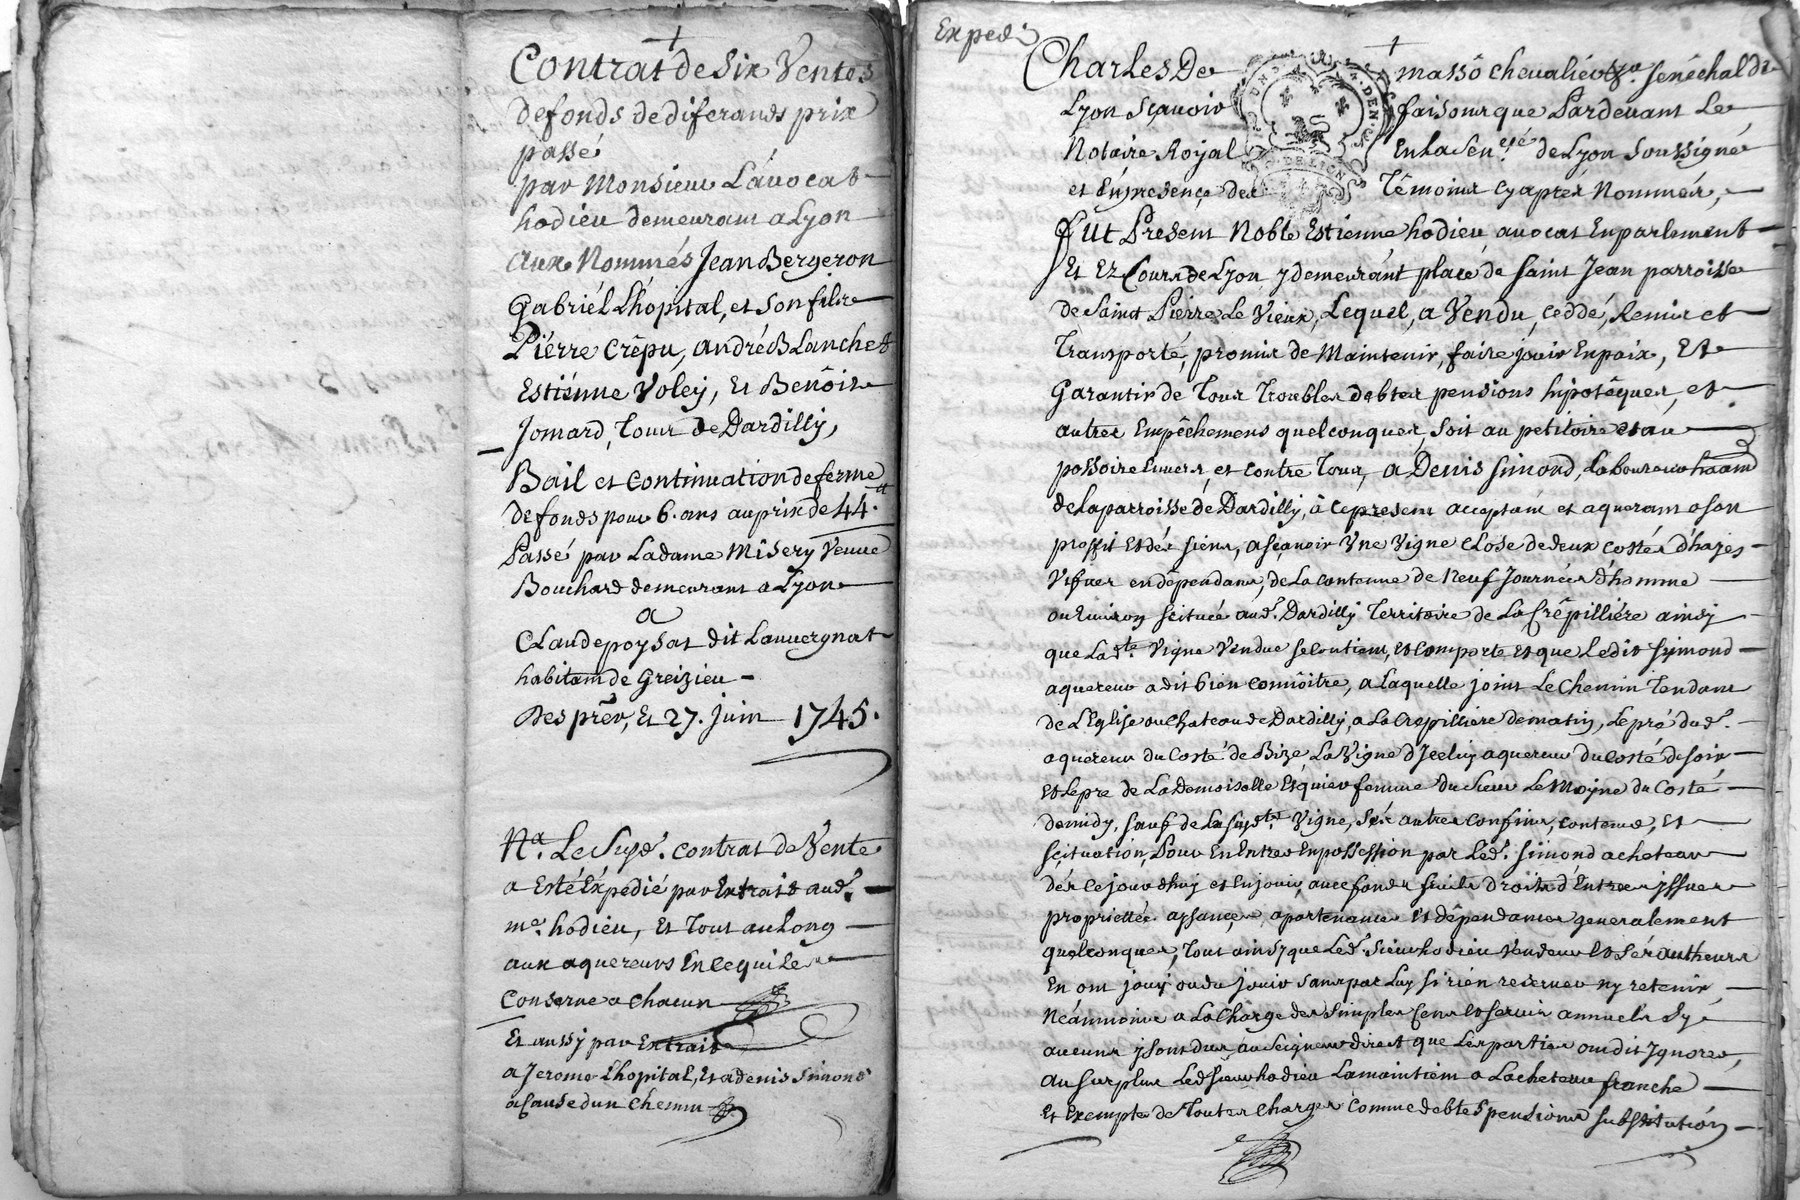 Contrat de Six Ventes
de fonds de diferands prix
passé
par Monsieur L'avocat
hodieu demeurant a Lyon
aux Nommés Jean Bergeron
Gabriél Lhópital, et son fils
Piérre Crêpu, andré Blanchet
Estiénne Voléy, Et Benôist
Jomard, Tous de Dardilly,
Bail et continuation de ferme
de fonds pour 6. ans au prix de 44.tt
Passé par La dame Misery Veuve
Bouchard demeurant a Lyon
a
Claude poysat dit Lauvergnat
habitant de Greizieu
Des prer, Et 27. Juin 1745.
Na. Le Susd. contrat de Vente
a Esté Éxpedié par Extrait aud.
me. hodieu, Et Tout au Long
aux aquereurs En ce qui Les
Conserne a Chacun
Et aussy par Extrait
a Jerome Lhopital, Et a denis Simond
a Cause dun Chemin
Exped.
Charles De massô chevaliér sénéchal de
Lyon Sçavoir faisons que Pardevant Le
Notaire Royal En la Sén.cée de Lyon Soussigné
et Én presençe des Têmoins cy aprés Nommés,
fut Present Noble Estienne hodieu avocat En parlement
Et Ez Cours de Lyon y demeurant place de Saint Jean parroisse
de Saint Piérre Le Vieux, Lequel, a Vendu, ceddé, Remis et
Transporté, promis de Maintenir, faire jouir En paix, Et
Garantir de Tous Troubles debtes pensions hipotêques, et
autres Empêchemens quelconques, Soit au petitoire et au
possoire Envers, et contre Tous, a Denis Simond, Laboureur habitant
de la parroisse de Dardilly, à ce present acceptant et aquerant a son
proffit Et dés siens, a sçavoir Vne Vigne close de deux costés d'hayes
Vifves en dêpendans, de La contenue de Neuf Journées d'homme
ou Environ Scituée aud. Dardilly Territoire de La Crêpilliére ainsy
que La d.te Vigne Vendue Se contient, Et Comporte Et que Ledit Simond
aquereur a dit bien connôitre, a Laquelle joint Le Chemin Tendant
de L'Eglise ou Chateau de Dardilly, a La Crepilliere de matin, Le pré dud.
aquereur du Costé de Bize, La Vigne d'Jceluy aquereur du Costé de soir
Et Le pre de La Demoiselle Esquier femme du Sieur Le Moyne du Costé
de midy, Sauf de La susd.te Vigne, Ses autres confins, contenue, Et
Scituation, Pour En Entrer En possession par Led. Simond acheteur
dés ce jour d'huy et En jouir, avec fonds fruits Droits d'Entrées yssues
propriettés aysances, apartenances Et dêpendances generalement
quelconques, Tout ainsy que Led. Sieur hodieu Vendeur et Sés autheurs
En ont jouy ou du jouir Sans par Luy si rién reserver ny retenir
Néanmoins a La Charge des Simples Cens Et Servis annuels Sy
aucuns y sont dus au Seigneur direct que Les parties ont dit Ignorer,
au Surplus Led. Sieur hodieu La maintient a L'acheteur franche
Et Exempte de Toutes Charges comme debtes pensions substitution